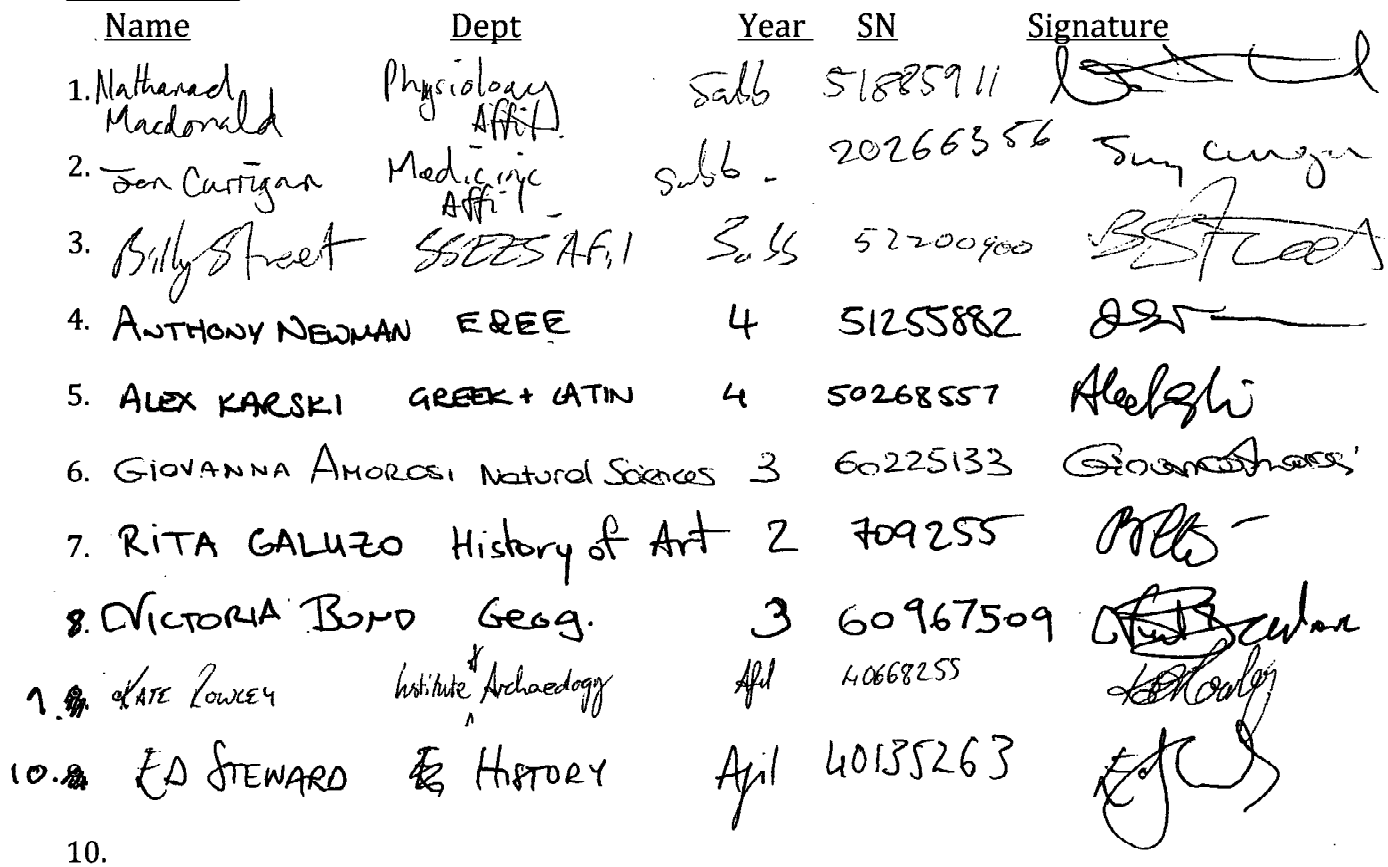 Name Dept Year SN Signature
1. Nathanael Physiology Sabb 51885911
Macdonald Affil.
2. Jen Carrigan Medicine Sabb - 20266356
Affil
3. Billy Street SSEES Afil Sabb 52200900 BStreet
4. ANTHONY NEWMAN EREE 4 51255882
5. ALEX KARSKI GREEK + LATIN 4 50268557
6. GIOVANNA AMOROSI Natural Sciences 3 60225133
7. RITA GALUZO History of Art 2 709255
8. VICTORIA BOND Geog. 3 60967509
9. KATE ROWLEY Institute of Archaeology Afil 40668255
10. ED STEWARD HISTORY Afil 40135263
10.